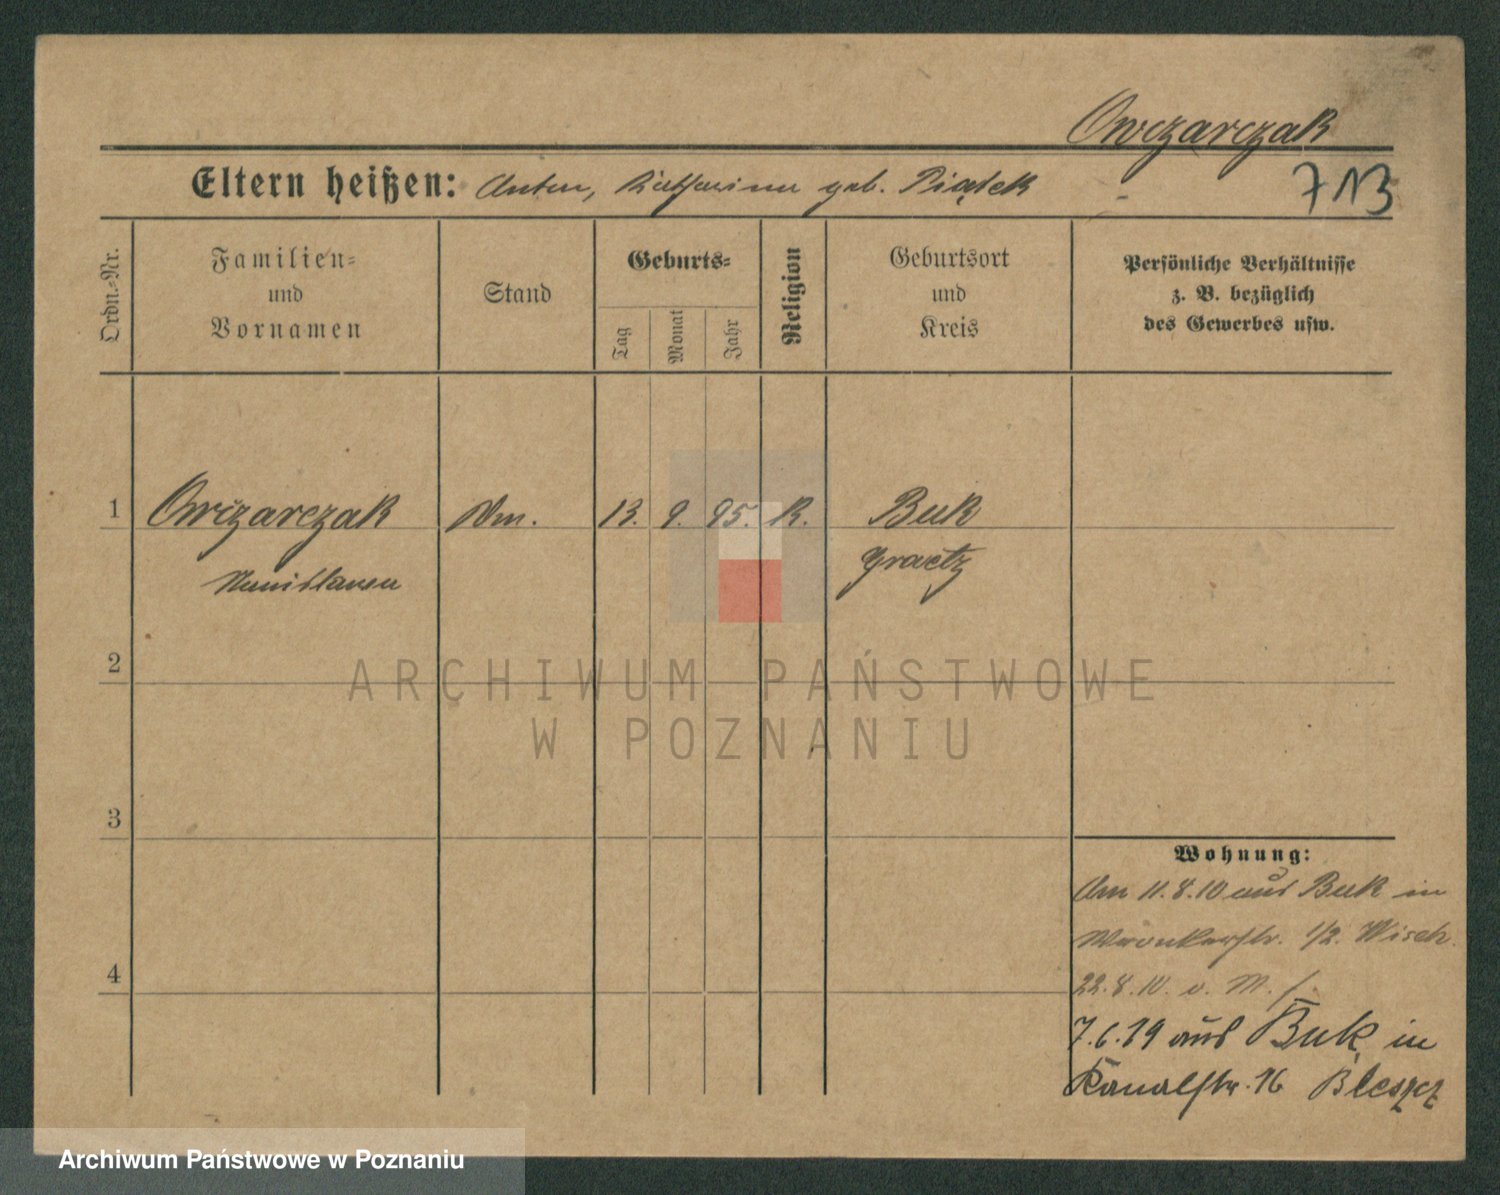 Owczarczak
Eltern heißen: Anton, Katharina geb. Piątek
713
Ordn.-Nr.
Familien-
und
Vornamen
Stand
Geburts-
Tag
Monat
Jahr
Religion
Geburtsort
und
Kreis
Persönliche Verhältnisse
z. B. bezüglich
des Gewerbes usw.
1 Owczarczak 13. 9. 95. K. Buk
Graetz
2
ARCHIWUM PAŃSTWOWE
W POZNANIU
3
Wohnung:
Am 11.8.10 aus Buk in
Wronkerstr. 1/2.
4
22.8.10. v. M.
7.6.19 aus Buk in
Kanalstr. 16
Archiwum Państwowe w Poznaniu